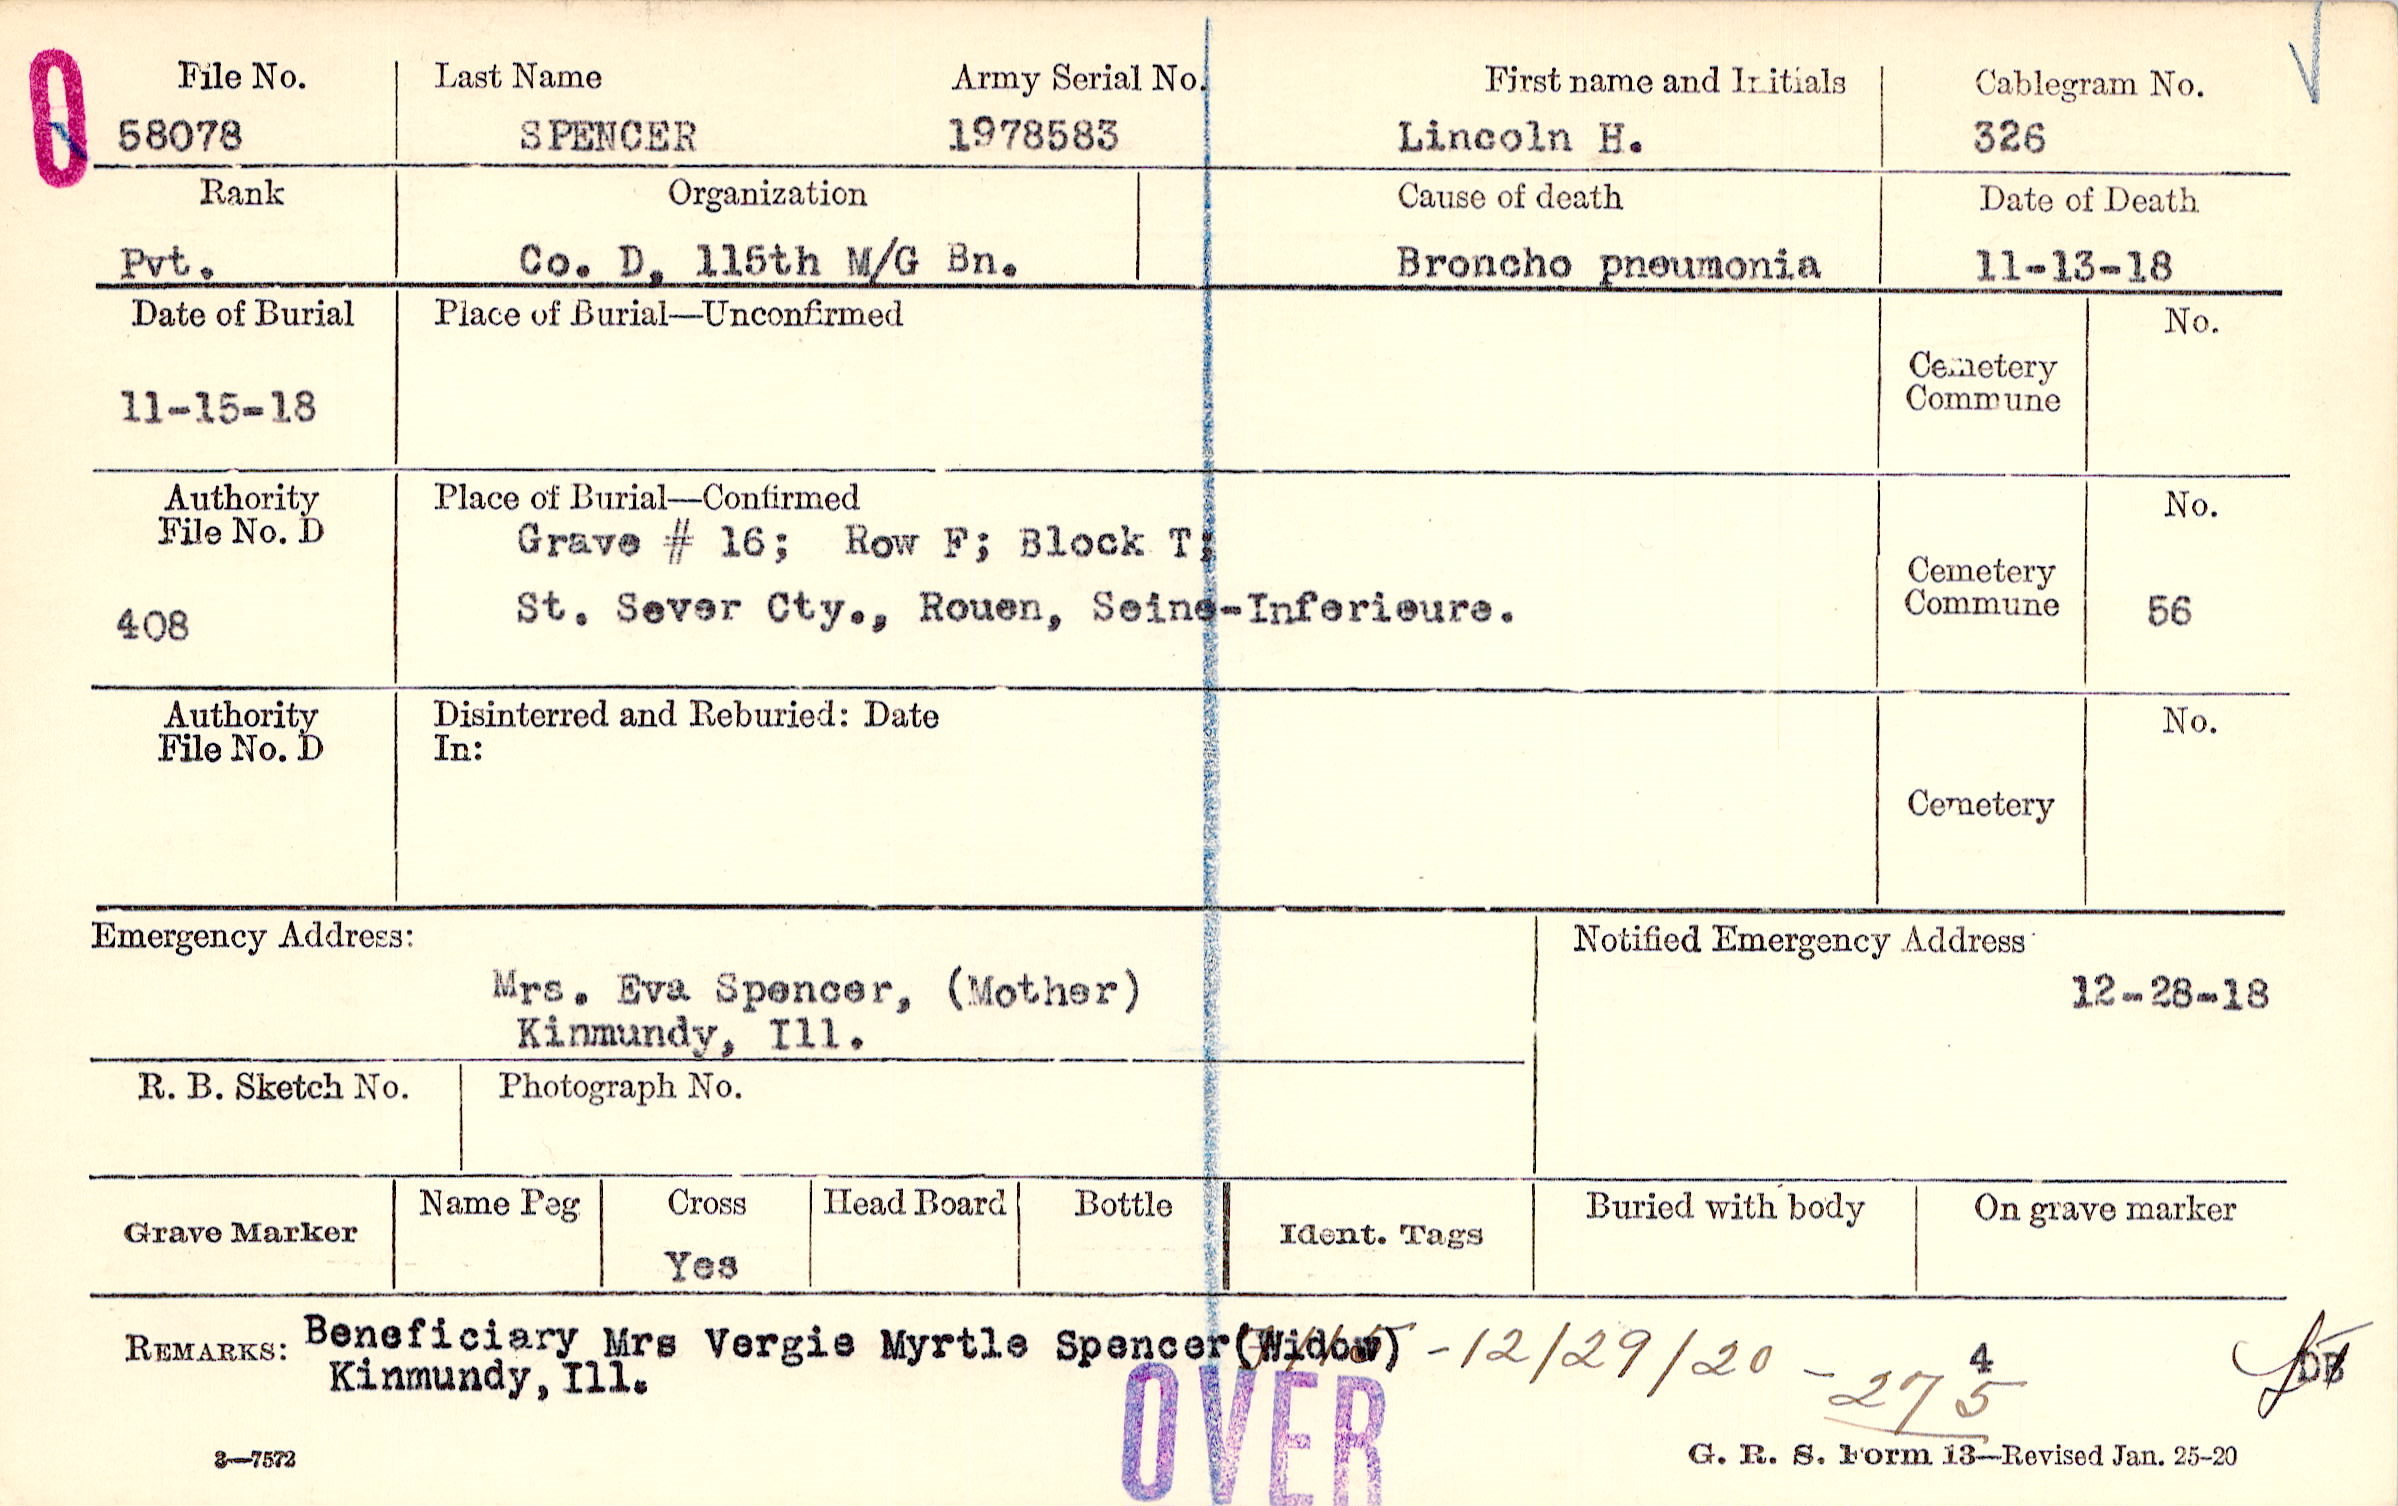 0
File No. Last Name Army Serial No. First name and Initials Cablegram No.
58078 SPENCER 1978583 Lincoln H. 326
Rank Organization Cause of death Date of Death
Pvt. Co. D, 115th M/G Bn. Broncho pneumonia 11-13-18
Date of Burial Place of Burial—Unconfirmed No.
Cemetery
Commune
11-15-18
Authority Place of Burial—Confirmed No.
File No. D Grave # 16; Row F; Block T;
Cemetery
408 St. Sever Cty., Rouen, Seine-Inferieure. Commune 56
Authority Disinterred and Reburied: Date No.
File No. D In:
Cemetery
Emergency Address: Notified Emergency Address
Mrs. Eva Spencer, (Mother) 12-28-18
Kinmundy, Ill.
R. B. Sketch No. Photograph No.
Grave Marker Name Peg Cross Head Board Bottle Ident. Tags Buried with body On grave marker
Yes
REMARKS: Beneficiary Mrs Vergie Myrtle Spencer(Widow) -12/29/20 - 275 4
Kinmundy, Ill.
OVER
3—7572 G. R. S. Form 13—Revised Jan. 25-20